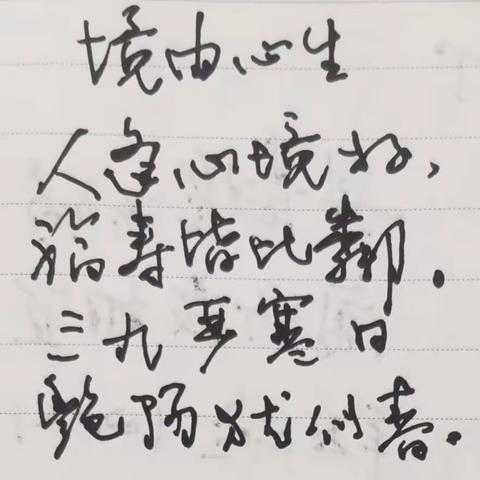 境由心生
人逢心境好,
福寿皆比邻.
三九无寒日
艳阳犹似春.